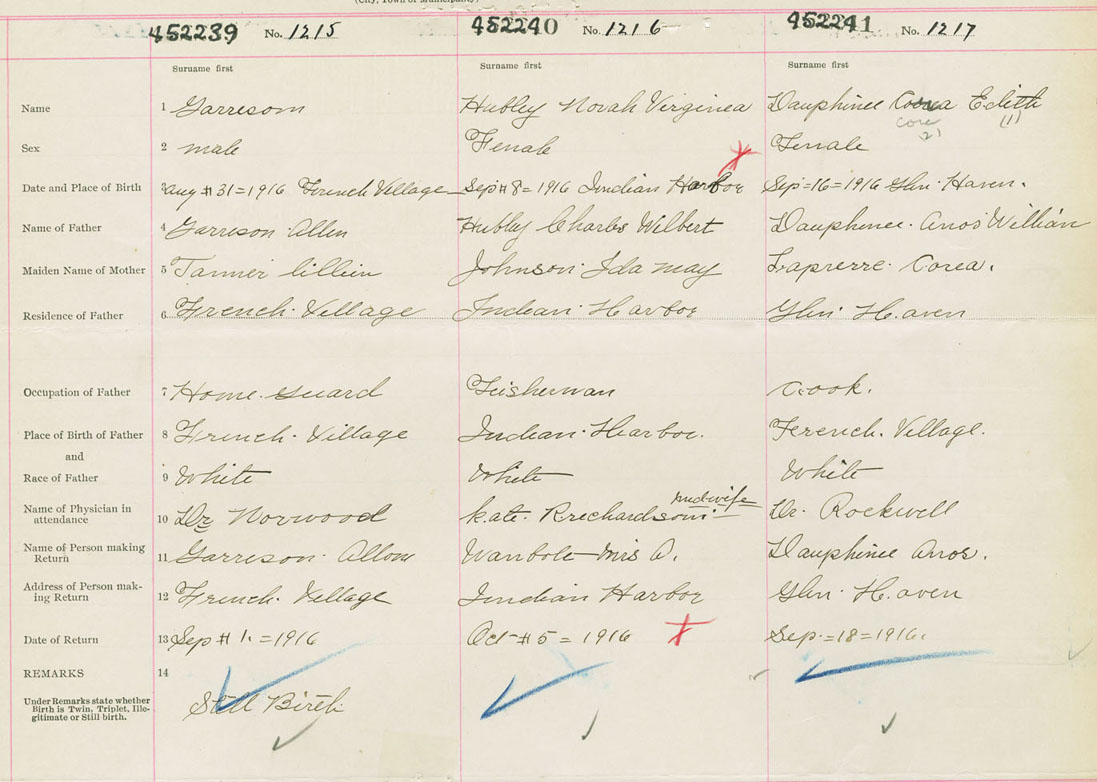 (City, Town or Municipality)
452239 No. 1215 452240 No. 1216 452241 No. 1217
Surname first Surname first Surname first
Name 1 Garrison Hubley Norah Virginea Dauphinee Edith
(1)
2)
Sex 2 male Female Female
Date and Place of Birth 3 Aug # 31=1916 French Village Sep # 8=1916 Indian Harbor Sep=16=1916 Glen Haven.
Name of Father 4 Garrison Allen Hubley Charles Wilbert Dauphinee. Amos William
Maiden Name of Mother 5 Tanner Lillien Johnson Ida may Lapierre. Corea.
Residence of Father 6 French. Village Indian Harbor Glen Haven
Occupation of Father 7 Home. Guard Fisherman Cook.
Place of Birth of Father 8 French. Village Indian. Harbor. French. Village.
and
Race of Father 9 White White White
Name of Physician in midwife
attendance 10 Dr Norwood Kate. Richardson. Dr. Rockwell
Name of Person making
Return 11 Garrison Allen Wanbolt Mrs A. Dauphinee Amos.
Address of Person mak-
ing Return 12 French. Village Indian Harbor Glen Haven
Date of Return 13 Sep # 1.=1916 Oct #5=1916 Sep.=18=1916.
REMARKS 14
Under Remarks state whether
Birth is Twin, Triplet, Ille-
gitimate or Still birth. Still Birth